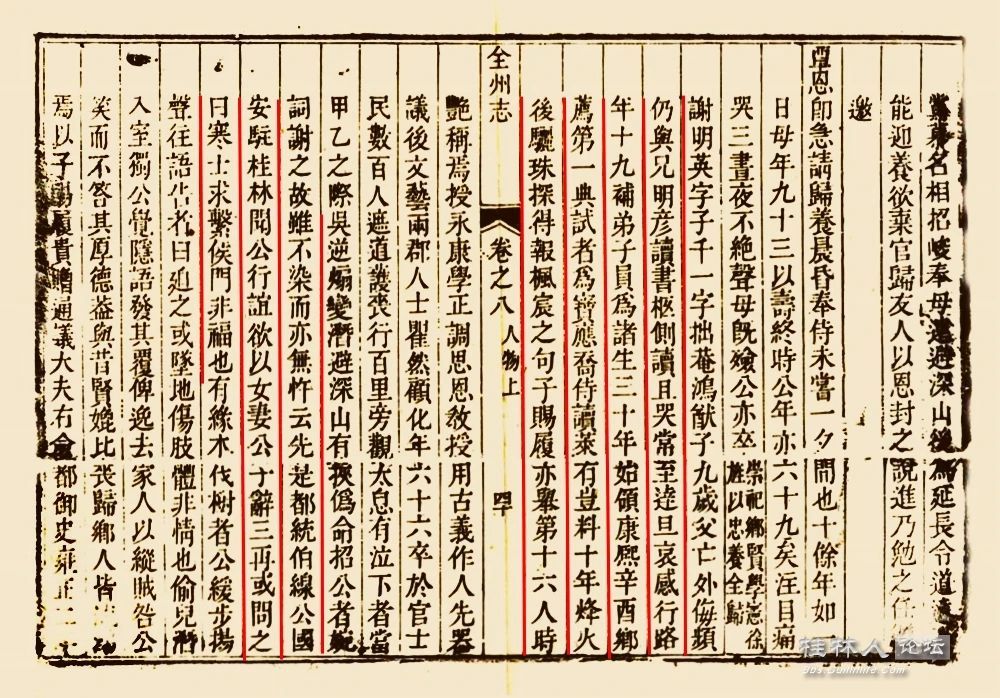 能迎養欲棄官歸友人以恩封之說進乃勉之任
邀
恩即急請歸養晨昏奉侍未嘗一夕間也十餘年如一
日母年九十三以壽終時公年亦六十九矣注目痛
哭三晝夜不絕聲母既殮公亦卒崇祀鄉賢學憲徐
旌以忠養全歸
謝明英字子千一字拙菴鴻猷子九歲父亡外侮頻
仍與兄明彥讀書柩側讀且哭常至達旦哀感行路
年十九補弟子員為諸生三十年始領康熙辛酉鄉
薦第一典試者為寶應喬侍讀萊有豈料十年烽火
後驪珠探得報楓宸之句子賜履亦舉第十六人時
全州志
卷之八 人物上
艷稱焉授永康學正調思恩教授用古義作人先器
議後文藝兩郡人士瞿然顧化年六十六卒於官士
民數百人遮道護喪行百里旁觀太息有泣下者當
甲乙之際吳逆煽變潛避深山有挾偽命招公者婉
詞謝之故雖不染而亦無忤云先是都統伯線公國
安駐桂林聞公行誼欲以女妻公力辭三再或問之
曰寒士求繫侯門非福也有緣木伐樹者公緩步揚
聲往語告者曰迫之或墜地傷肢體非情也偷兒潛
入室獨公覺隱語發其覆俾逸去家人以縱賊咎公
笑而不答其厚德葢與昔賢媲比喪歸鄉人皆
焉以子賜履貴贈通議大夫右僉都御史雍正二
桂林人论坛